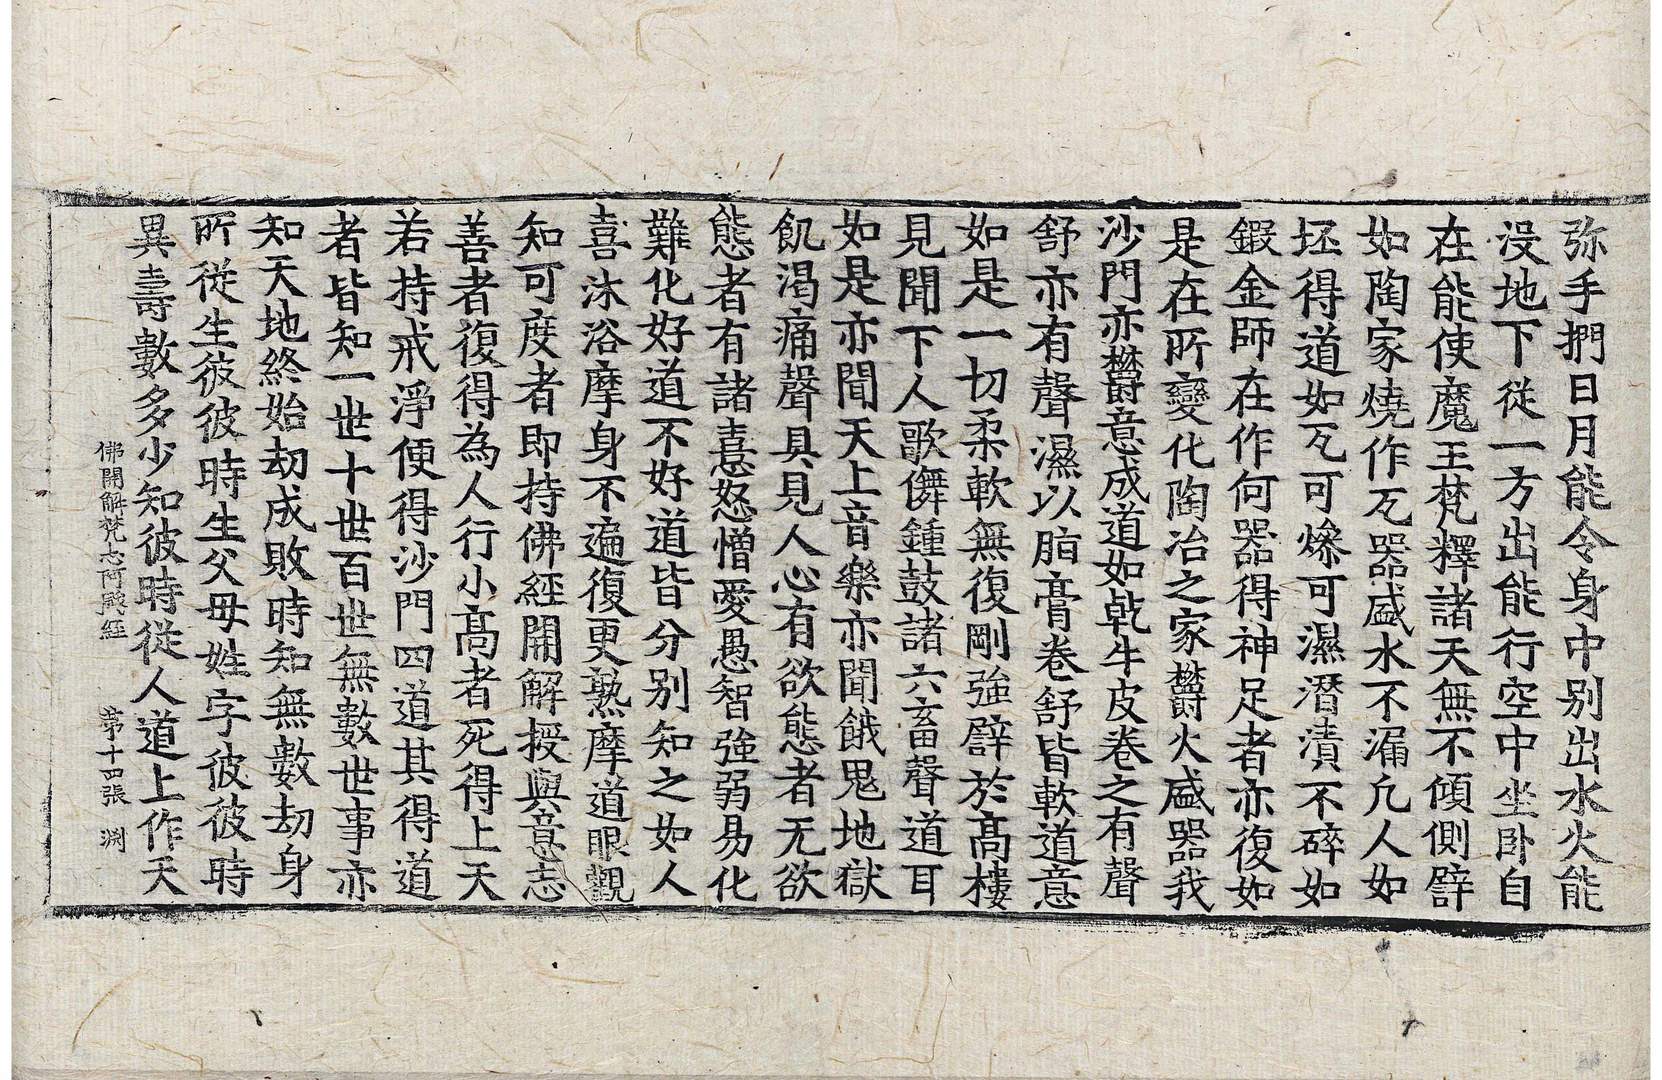 弥手捫日月能令身中別出水火能
没地下從一方出能行空中坐卧自
在能使魔王梵釋諸天無不傾側譬
如陶家燒作瓦器盛水不漏凡人如
坯得道如瓦可爍可濕潛漬不碎如
鍛金師在作何器得神足者亦復如
是在所變化陶冶之家欝火盛器我
沙門亦欝意成道如乾牛皮卷之有聲
舒亦有聲濕以脂膏卷舒皆軟道意
如是一切柔軟無復剛強譬於髙樓
見聞下人歌儛鍾鼓諸六畜聲道耳
如是亦聞天上音樂亦聞餓鬼地獄
飢渴痛聲具見人心有欲態者无欲
態者有諸憙怒憎愛愚智強弱易化
難化好道不好道皆分別知之如人
喜沐浴摩身不遍復更熟摩道眼觀
知可度者即持佛經開解授與意志
善者復得為人行小髙者死得上天
若持戒淨便得沙門四道其得道
者皆知一世十世百世無數世事亦
知天地終始劫成敗時知無數劫身
所從生彼彼時生父母姓字彼彼時
異壽數多少知彼時從人道上作天
佛開解梵志阿颰經 第十四張 渊